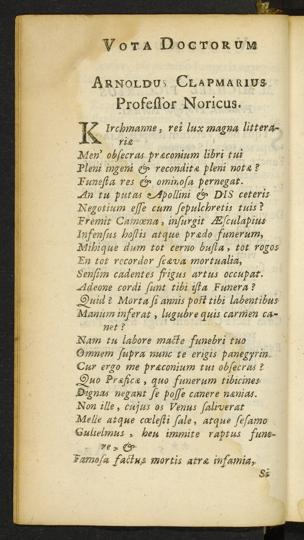 VOTA DOCTORUM
ARNOLDUS CLAPMARIUS
Profeſſor Noricus.
Kirchmanne, rei lux magna littera-
riæ
Men' obſecras præconium libri tui
Pleni ingeni & reconditæ pleni notæ?
Funeſta res & ominoſa pernegat.
An tu putas Apollini & DIS ceteris
Negotium eſſe cum ſepulchretis tuis?
Fremit Camœna, inſurgit Æſculapius
Infenſus hoſtis atque prædo funerum,
Mihique dum tot cerno buſta, tot rogos
En tot recordor ſcæva mortualia,
Senſim cadentes frigus artus occupat.
Adeone cordi ſunt tibi iſta Funera?
Quid? Morta ſi annis poſt tibi labentibus
Manum inferat, lugubre quis carmen ca-
net?
Nam tu labore macte funebri tuo
Omnem ſupra nunc te erigis panegyrin.
Cur ergo me præconium tus obſecras?
Quo Præficæ, quo funerum tibicines
Dignas negant ſe poſſe canere nænias.
Non ille, cujus os Venus ſaliverat
Melle atque cœleſti ſale, atque ſeſamo
Gulielmus, heu immite raptus fune-
re, &
Famoſa factus mortis atræ infamia,
Si